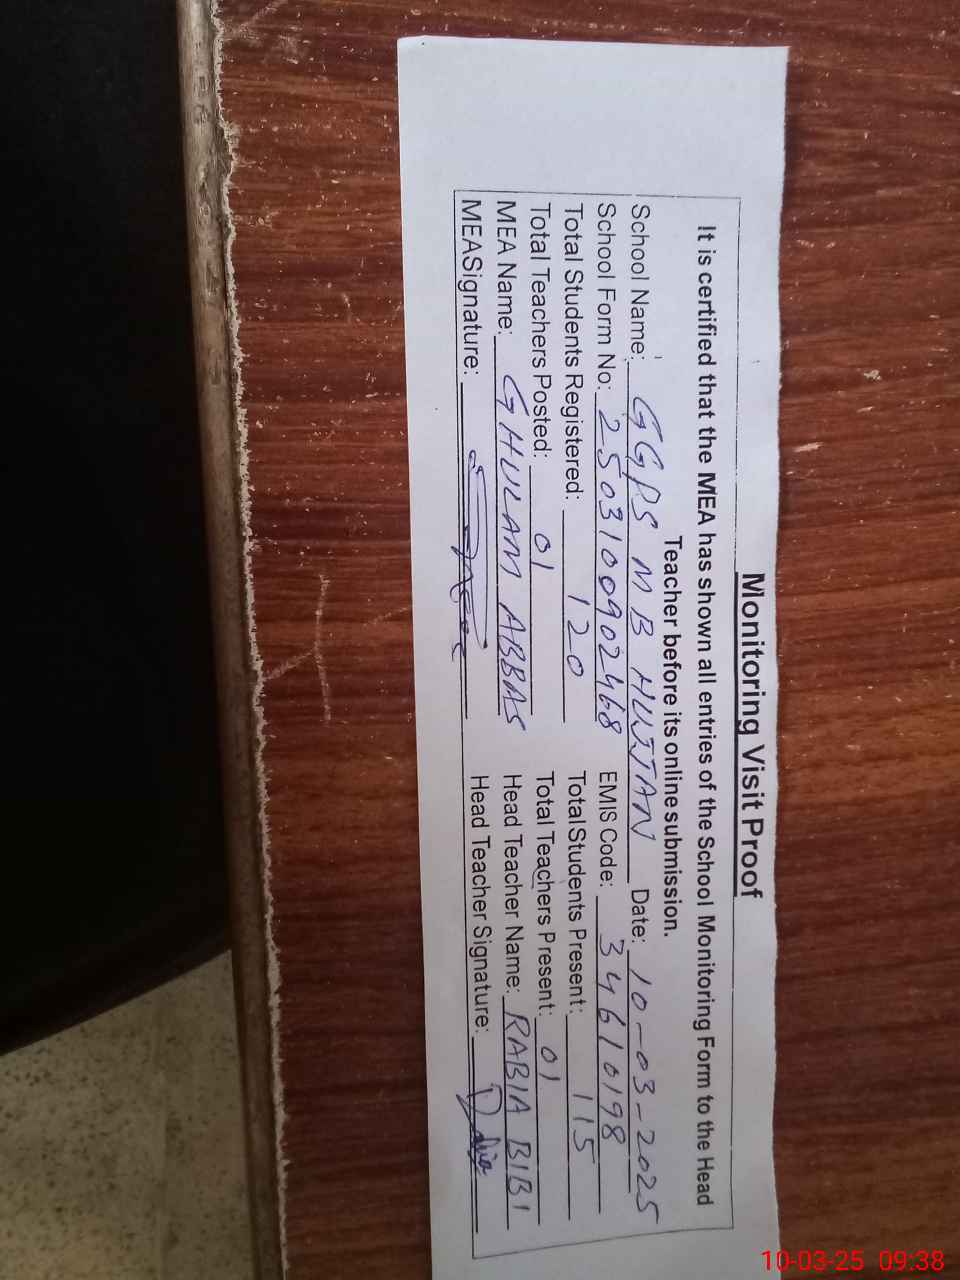 Monitoring Visit Proof
It is certified that the MEA has shown all entries of the School Monitoring Form to the Head
Teacher before its online submission.
School Name: GGPS M B HUJJAN Date: 10-03-2025
School Form No: 2503100902468 EMIS Code: 34610198
Total Students Registered: 120 Total Students Present: 115
Total Teachers Posted: 01 Total Teachers Present: 01
MEA Name: GHULAM ABBAS Head Teacher Name: RABIA BIBI
MEASignature: Head Teacher Signature:
10-03-25 09:38